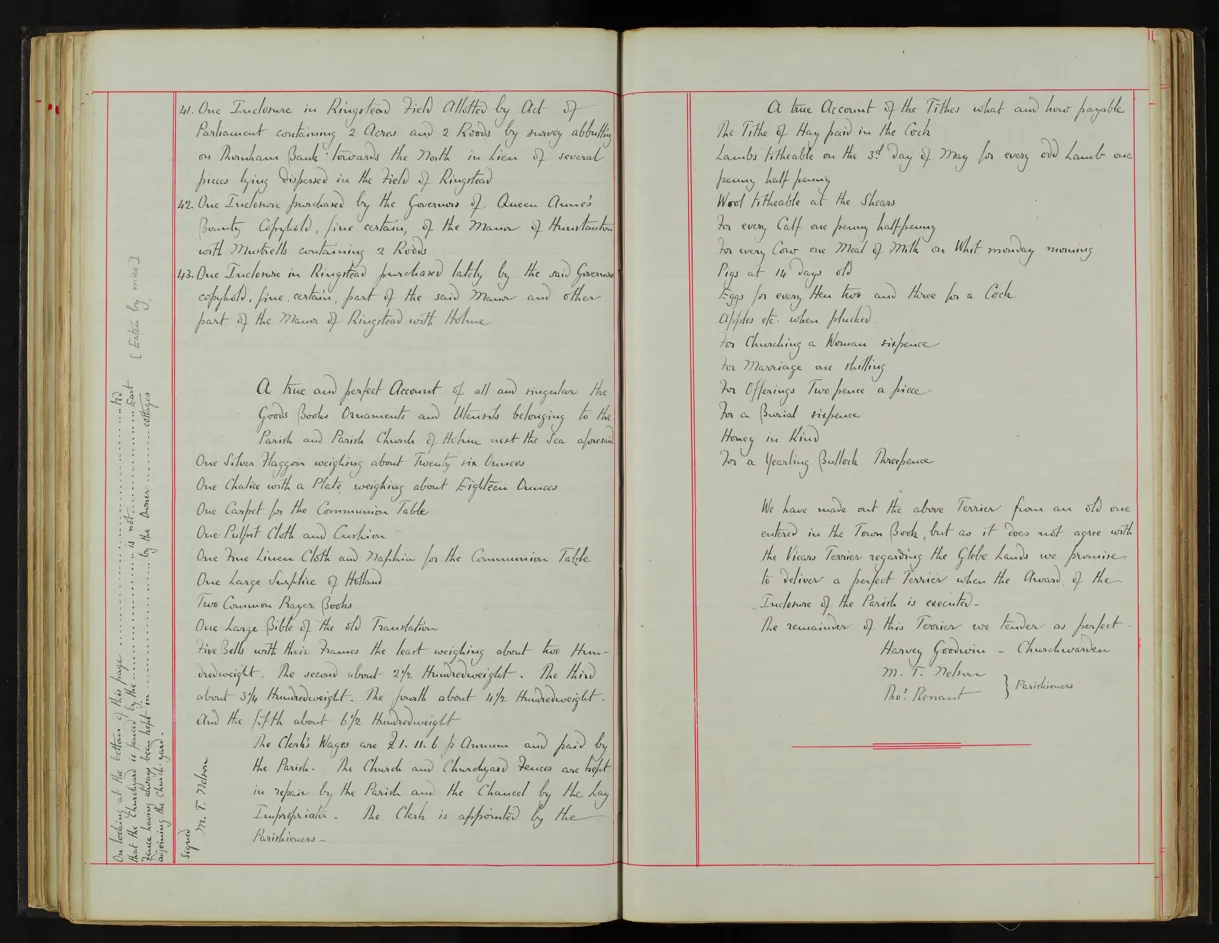 41. One Inclosure in Ringstead Field Allotted by Act of
Parliament containing 2 Acres and 2 Roods by survey abbutting
on Thornham Bank towards the North in Lieu of several
pieces lying dispersed in the Field of Ringstead
42. One Inclosure purchased by the Governors of Queen Anne's
Bounty Copyhold, fine certain, of the Manor of Hunstanton
with Mustrells containing 2 Roods
43. One Inclosure in Ringstead purchased lately by the said Governors
copyhold, fine certain, part of the said Manor and other
part of the Manor of Ringstead with Holme
A true and perfect Account of all and singular the
Goods Books Ornaments and Utensils belonging to the
Parish and Parish Church of Holme next the Sea aforesaid
One Silver Flaggon weighing about Twenty six Ounces
One Chalice with a Plate weighing about Eighteen Ounces
One Carpet for the Communion Table
One Pulpit Cloth and Cushion
One Fine Linen Cloth and Napkin for the Communion Table
One Large Surplice of Holland
Two Common Prayer Books
One Large Bible of the old Translation
Five Bells with their Frames the least weighing about two Hun-
dredweight. The second about 2½ Hundredweight. The third
about 3¼ Hundredweight. The fourth about 4½ Hundredweight.
And the fifth about 6½ Hundredweight
The Clerk's Wages are £1.11.6 p Annum and paid by
the Parish. The Church and Churchyard Fences are kept
in repair by the Parish and the Chancel by the Lay
Impropriator. The Clerk is appointed by the
Parishioners -
Signed
M. T. Nelson
On looking at the bottom of this page
that the Churchyard is fenced by the is not East
Fence having always been kept in by the Owner cottages
adjoining the Church-yard.
[Eaten by mice]
A true Account of the Tithes what and how payable
The Tithe of Hay paid in the Cock
Lambs titheable on the 3rd day of May for every odd Lamb one
penny half penny
Wool titheable at the Shears
For every Calf one penny halfpenny
For every Cow one Meal of Milk on Whit monday morning
Pigs at 14 days old
Eggs for every Hen two and three for a Cock
Apples etc. when plucked.
For Churching a Woman sixpence
For Marriage one shilling
For Offerings Two pence a piece
For a Burial sixpence
Honey in Kind
For a Yearling Bullock Threepence
We have made out the above Terrier from an old one
entered in the Town Book, but as it does not agree with
the Vicars Terrier regarding the Glebe Lands we promise
to deliver a perfect Terrier when the Award of the
Inclosure of the Parish is executed -
The remainder of this Terrier we tender as perfect -
Harvey Goodwin - Churchwarden
M. T. Nelson
Thos. Renaut } Parishioners